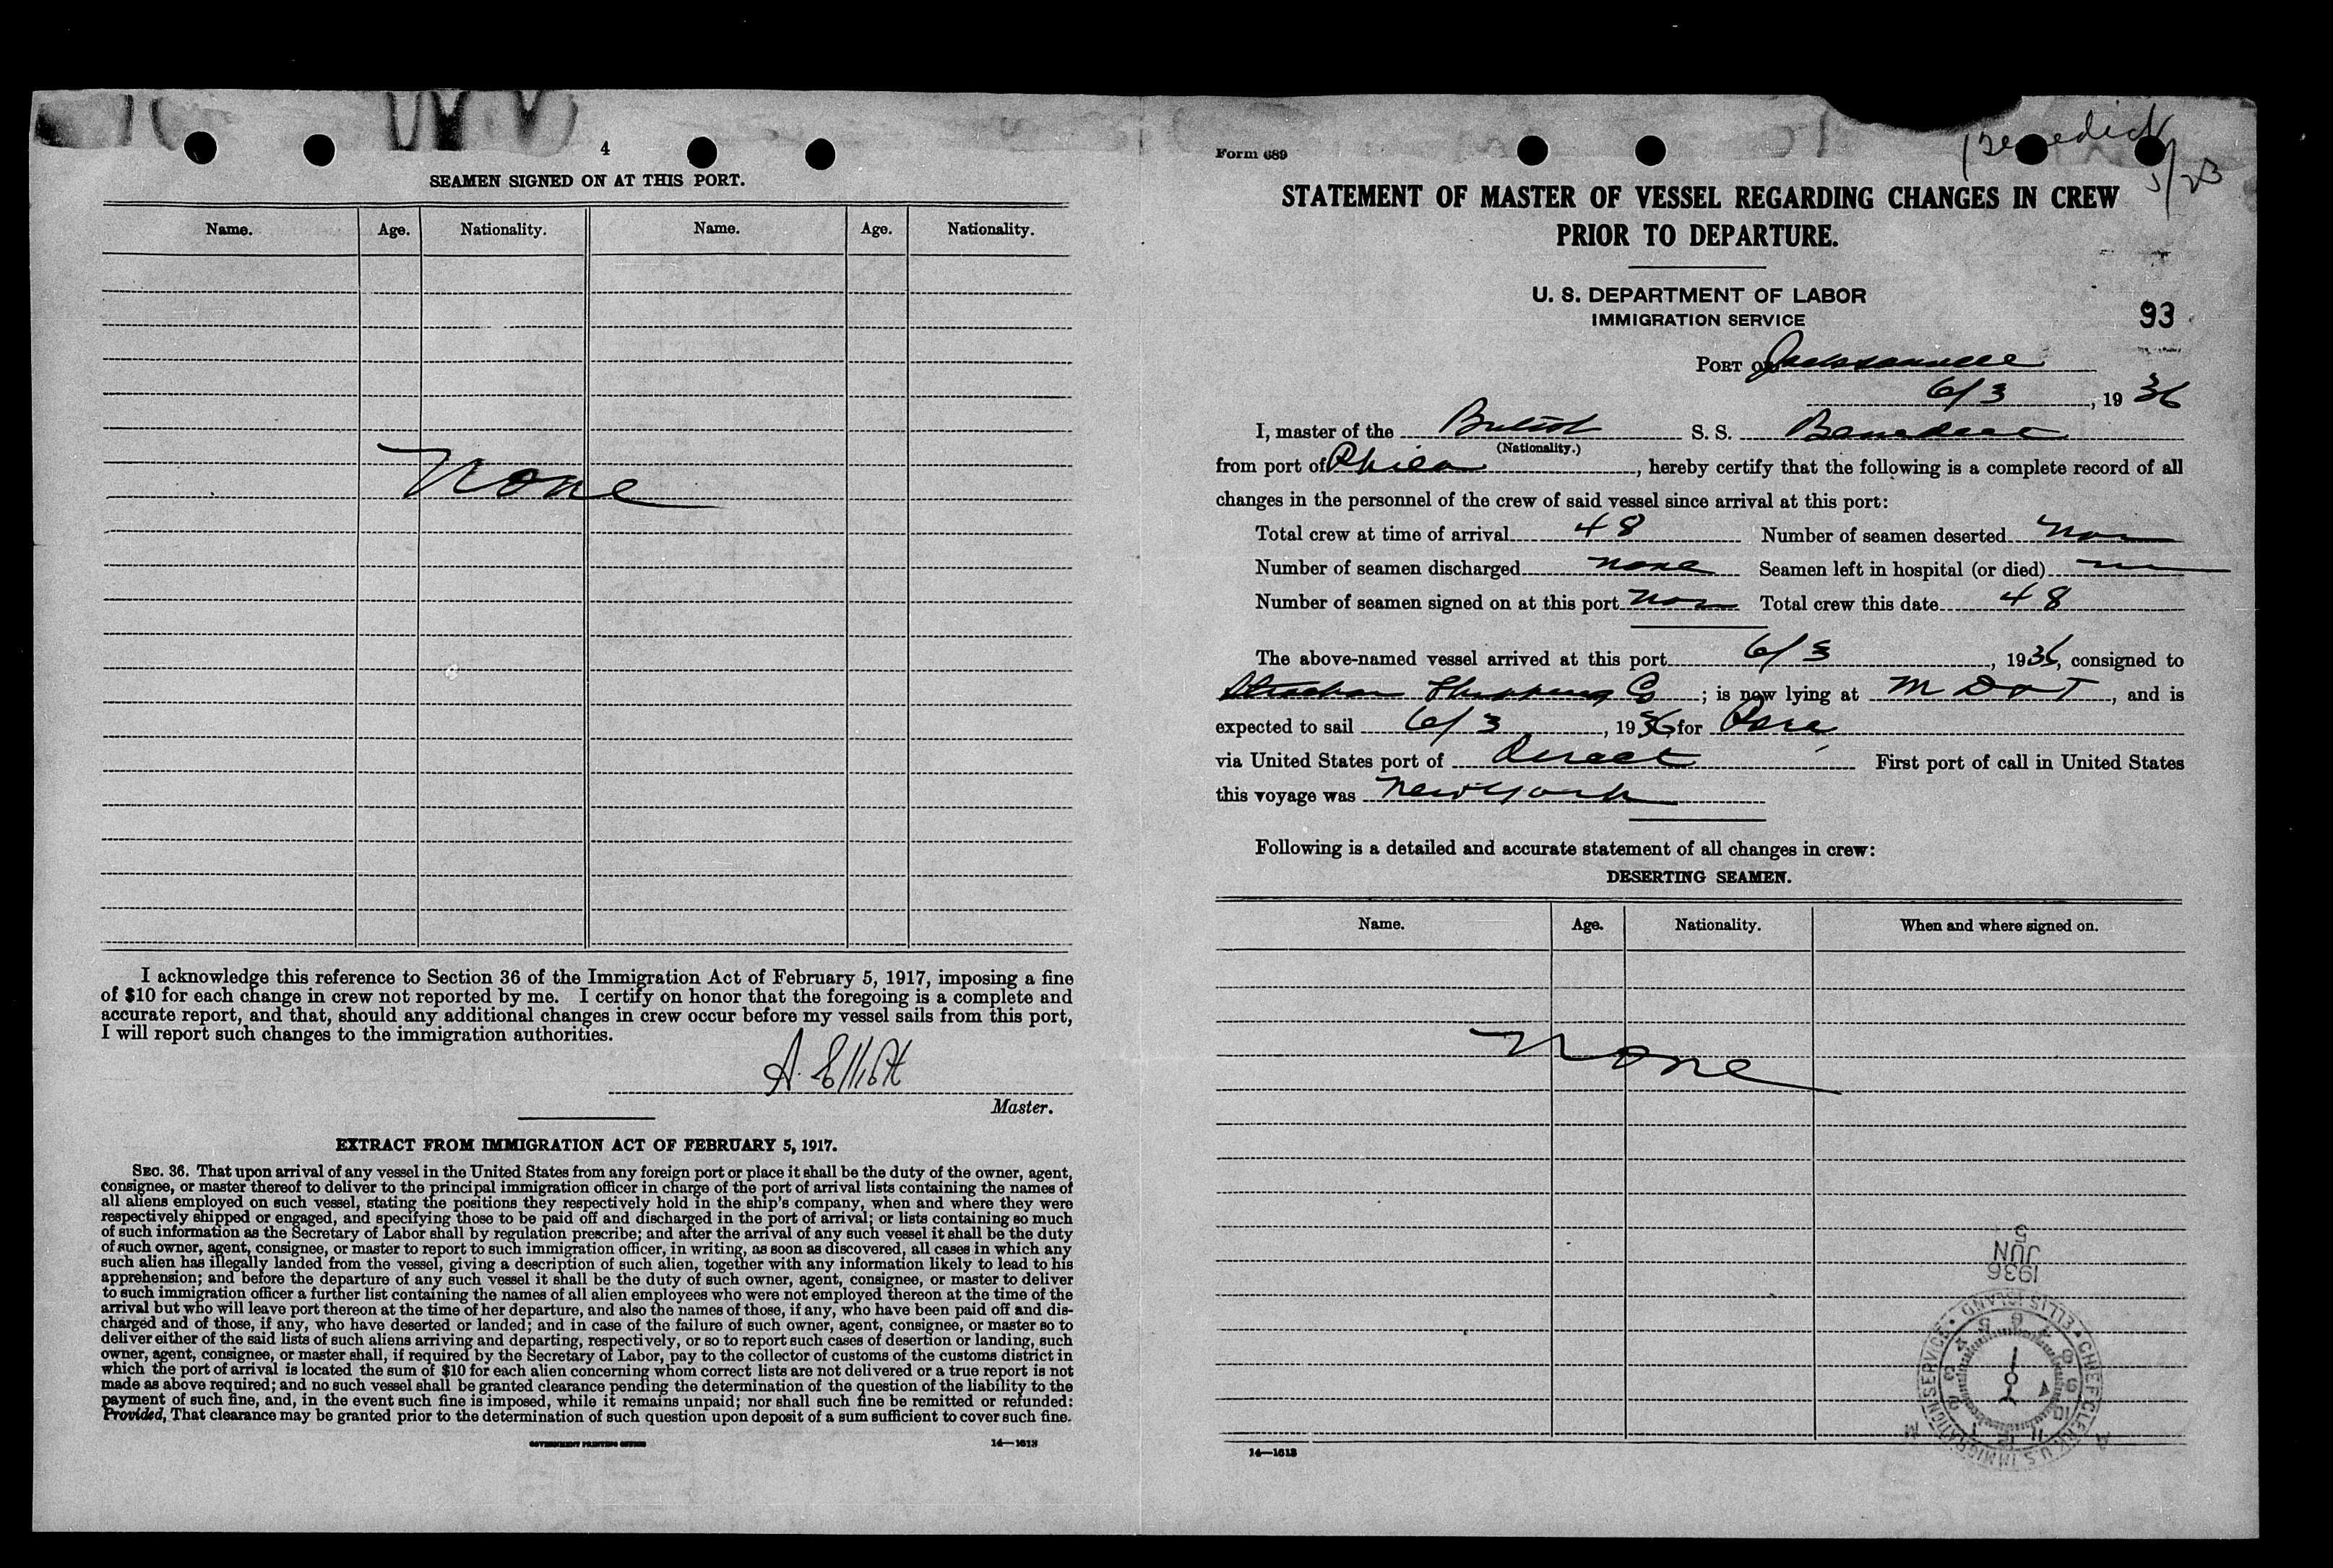 4
SEAMEN SIGNED ON AT THIS PORT.
Name. Age. Nationality. Name. Age. Nationality.
None
I acknowledge this reference to Section 36 of the Immigration Act of February 5, 1917, imposing a fine
of $10 for each change in crew not reported by me. I certify on honor that the foregoing is a complete and
accurate report, and that, should any additional changes in crew occur before my vessel sails from this port,
I will report such changes to the immigration authorities.
A. Elliott
Master.
EXTRACT FROM IMMIGRATION ACT OF FEBRUARY 5, 1917.
SEC. 36. That upon arrival of any vessel in the United States from any foreign port or place it shall be the duty of the owner, agent,
consignee, or master thereof to deliver to the principal immigration officer in charge of the port of arrival lists containing the names of
all aliens employed on such vessel, stating the positions they respectively hold in the ship's company, when and where they were
respectively shipped or engaged, and specifying those to be paid off and discharged in the port of arrival; or lists containing so much
of such information as the Secretary of Labor shall by regulation prescribe; and after the arrival of any such vessel it shall be the duty
of such owner, agent, consignee, or master to report to such immigration officer, in writing, as soon as discovered, all cases in which any
such alien has illegally landed from the vessel, giving a description of such alien, together with any information likely to lead to his
apprehension; and before the departure of any such vessel it shall be the duty of such owner, agent, consignee, or master to deliver
to such immigration officer a further list containing the names of all alien employees who were not employed thereon at the time of the
arrival but who will leave port thereon at the time of her departure, and also the names of those, if any, who have been paid off and dis-
charged and of those, if any, who have deserted or landed; and in case of the failure of such owner, agent, consignee, or master so to
deliver either of the said lists of such aliens arriving and departing, respectively, or so to report such cases of desertion or landing, such
owner, agent, consignee, or master shall, if required by the Secretary of Labor, pay to the collector of customs of the customs district in
which the port of arrival is located the sum of $10 for each alien concerning whom correct lists are not delivered or a true report is not
made as above required; and no such vessel shall be granted clearance pending the determination of the question of the liability to the
payment of such fine, and, in the event such fine is imposed, while it remains unpaid; nor shall such fine be remitted or refunded:
Provided, That clearance may be granted prior to the determination of such question upon deposit of a sum sufficient to cover such fine.
GOVERNMENT PRINTING OFFICE 14—1613
Form 689
Benedict
5/23
STATEMENT OF MASTER OF VESSEL REGARDING CHANGES IN CREW
PRIOR TO DEPARTURE.
U. S. DEPARTMENT OF LABOR
IMMIGRATION SERVICE
93
PORT OF Jacksonville
6/3, 1936
I, master of the British S. S. Benedict
(Nationality.)
from port of Phila, hereby certify that the following is a complete record of all
changes in the personnel of the crew of said vessel since arrival at this port:
Total crew at time of arrival 48 Number of seamen deserted None
Number of seamen discharged None Seamen left in hospital (or died)
Number of seamen signed on at this port None Total crew this date 48
The above-named vessel arrived at this port 6/3, 1936, consigned to
Strachan Shipping Co; is now lying at M D & T, and is
expected to sail 6/3, 1936, for Para
via United States port of Direct First port of call in United States
this voyage was New York
Following is a detailed and accurate statement of all changes in crew:
DESERTING SEAMEN.
Name. Age. Nationality. When and where signed on.
None
1936
JUN
5
CHIEF CLERK U.S. IMMIGRATION SERVICE • ELLIS ISLAND •
14—1613